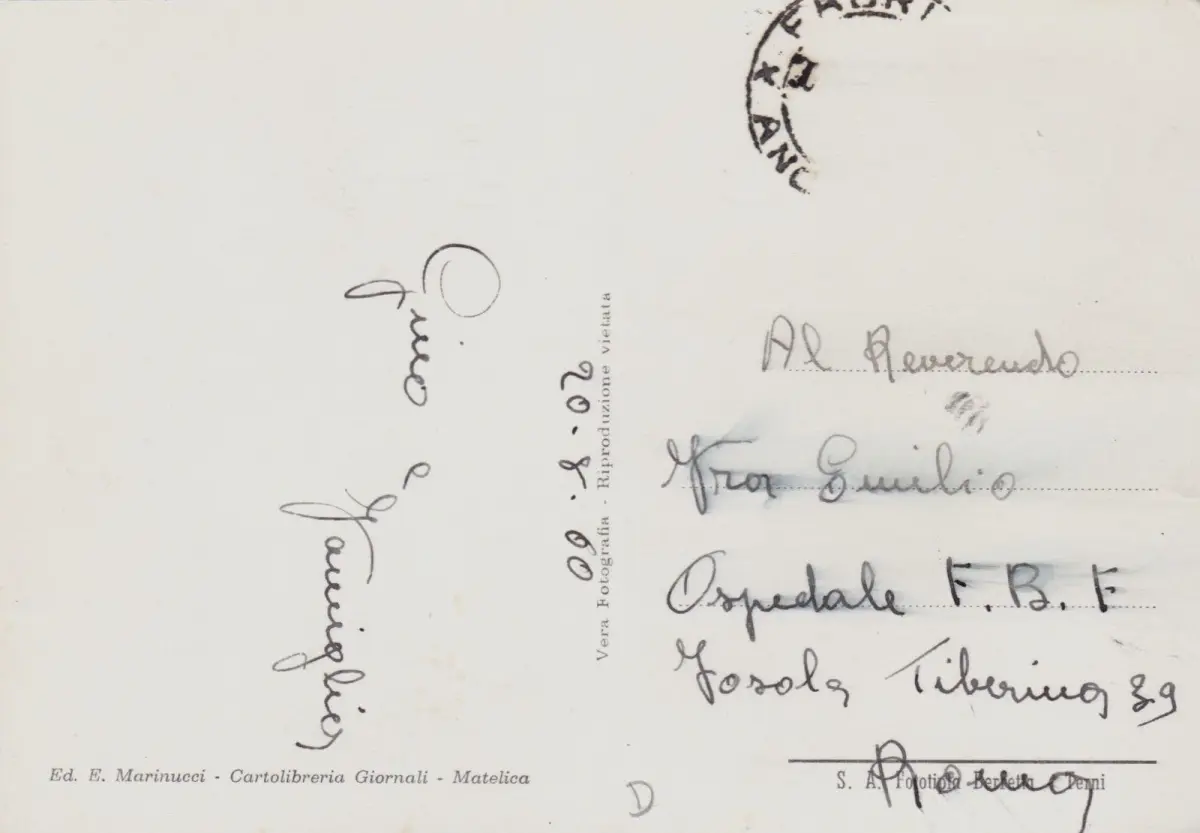 FABRI
ANC
Gino e Famiglia
20.8.60
Vera Fotografia - Riproduzione vietata
Al Reverendo
Fra Emilio
Ospedale F. B. F
Isola Tiberina 39
Roma
Ed. E. Marinucci - Cartolibreria Giornali - Matelica
S. A. Fototipia Terni
D